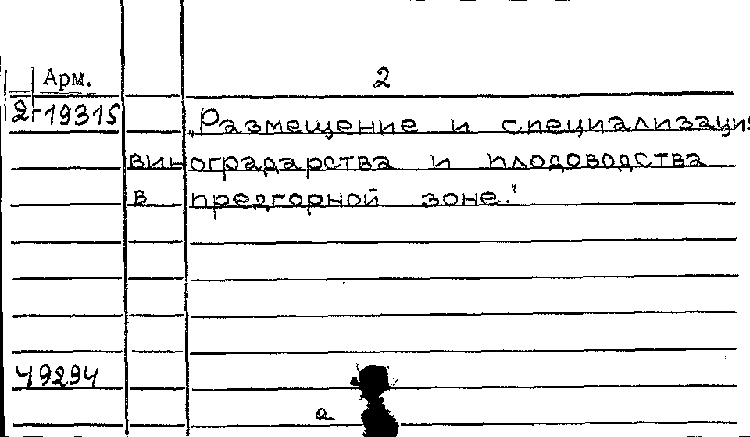 Арм. 2
2г-19315 „Размещение и специализация
виноградарства и плодоводства
в предгорной зоне."
49294
а